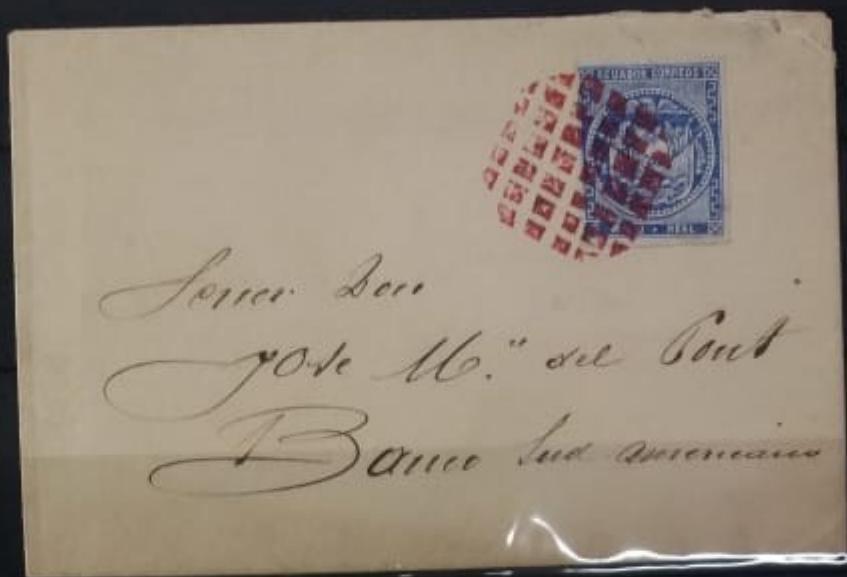 ECUADOR CORREOS
REAL
Señor Don
José M.ª del Pont
Banco Sud americano